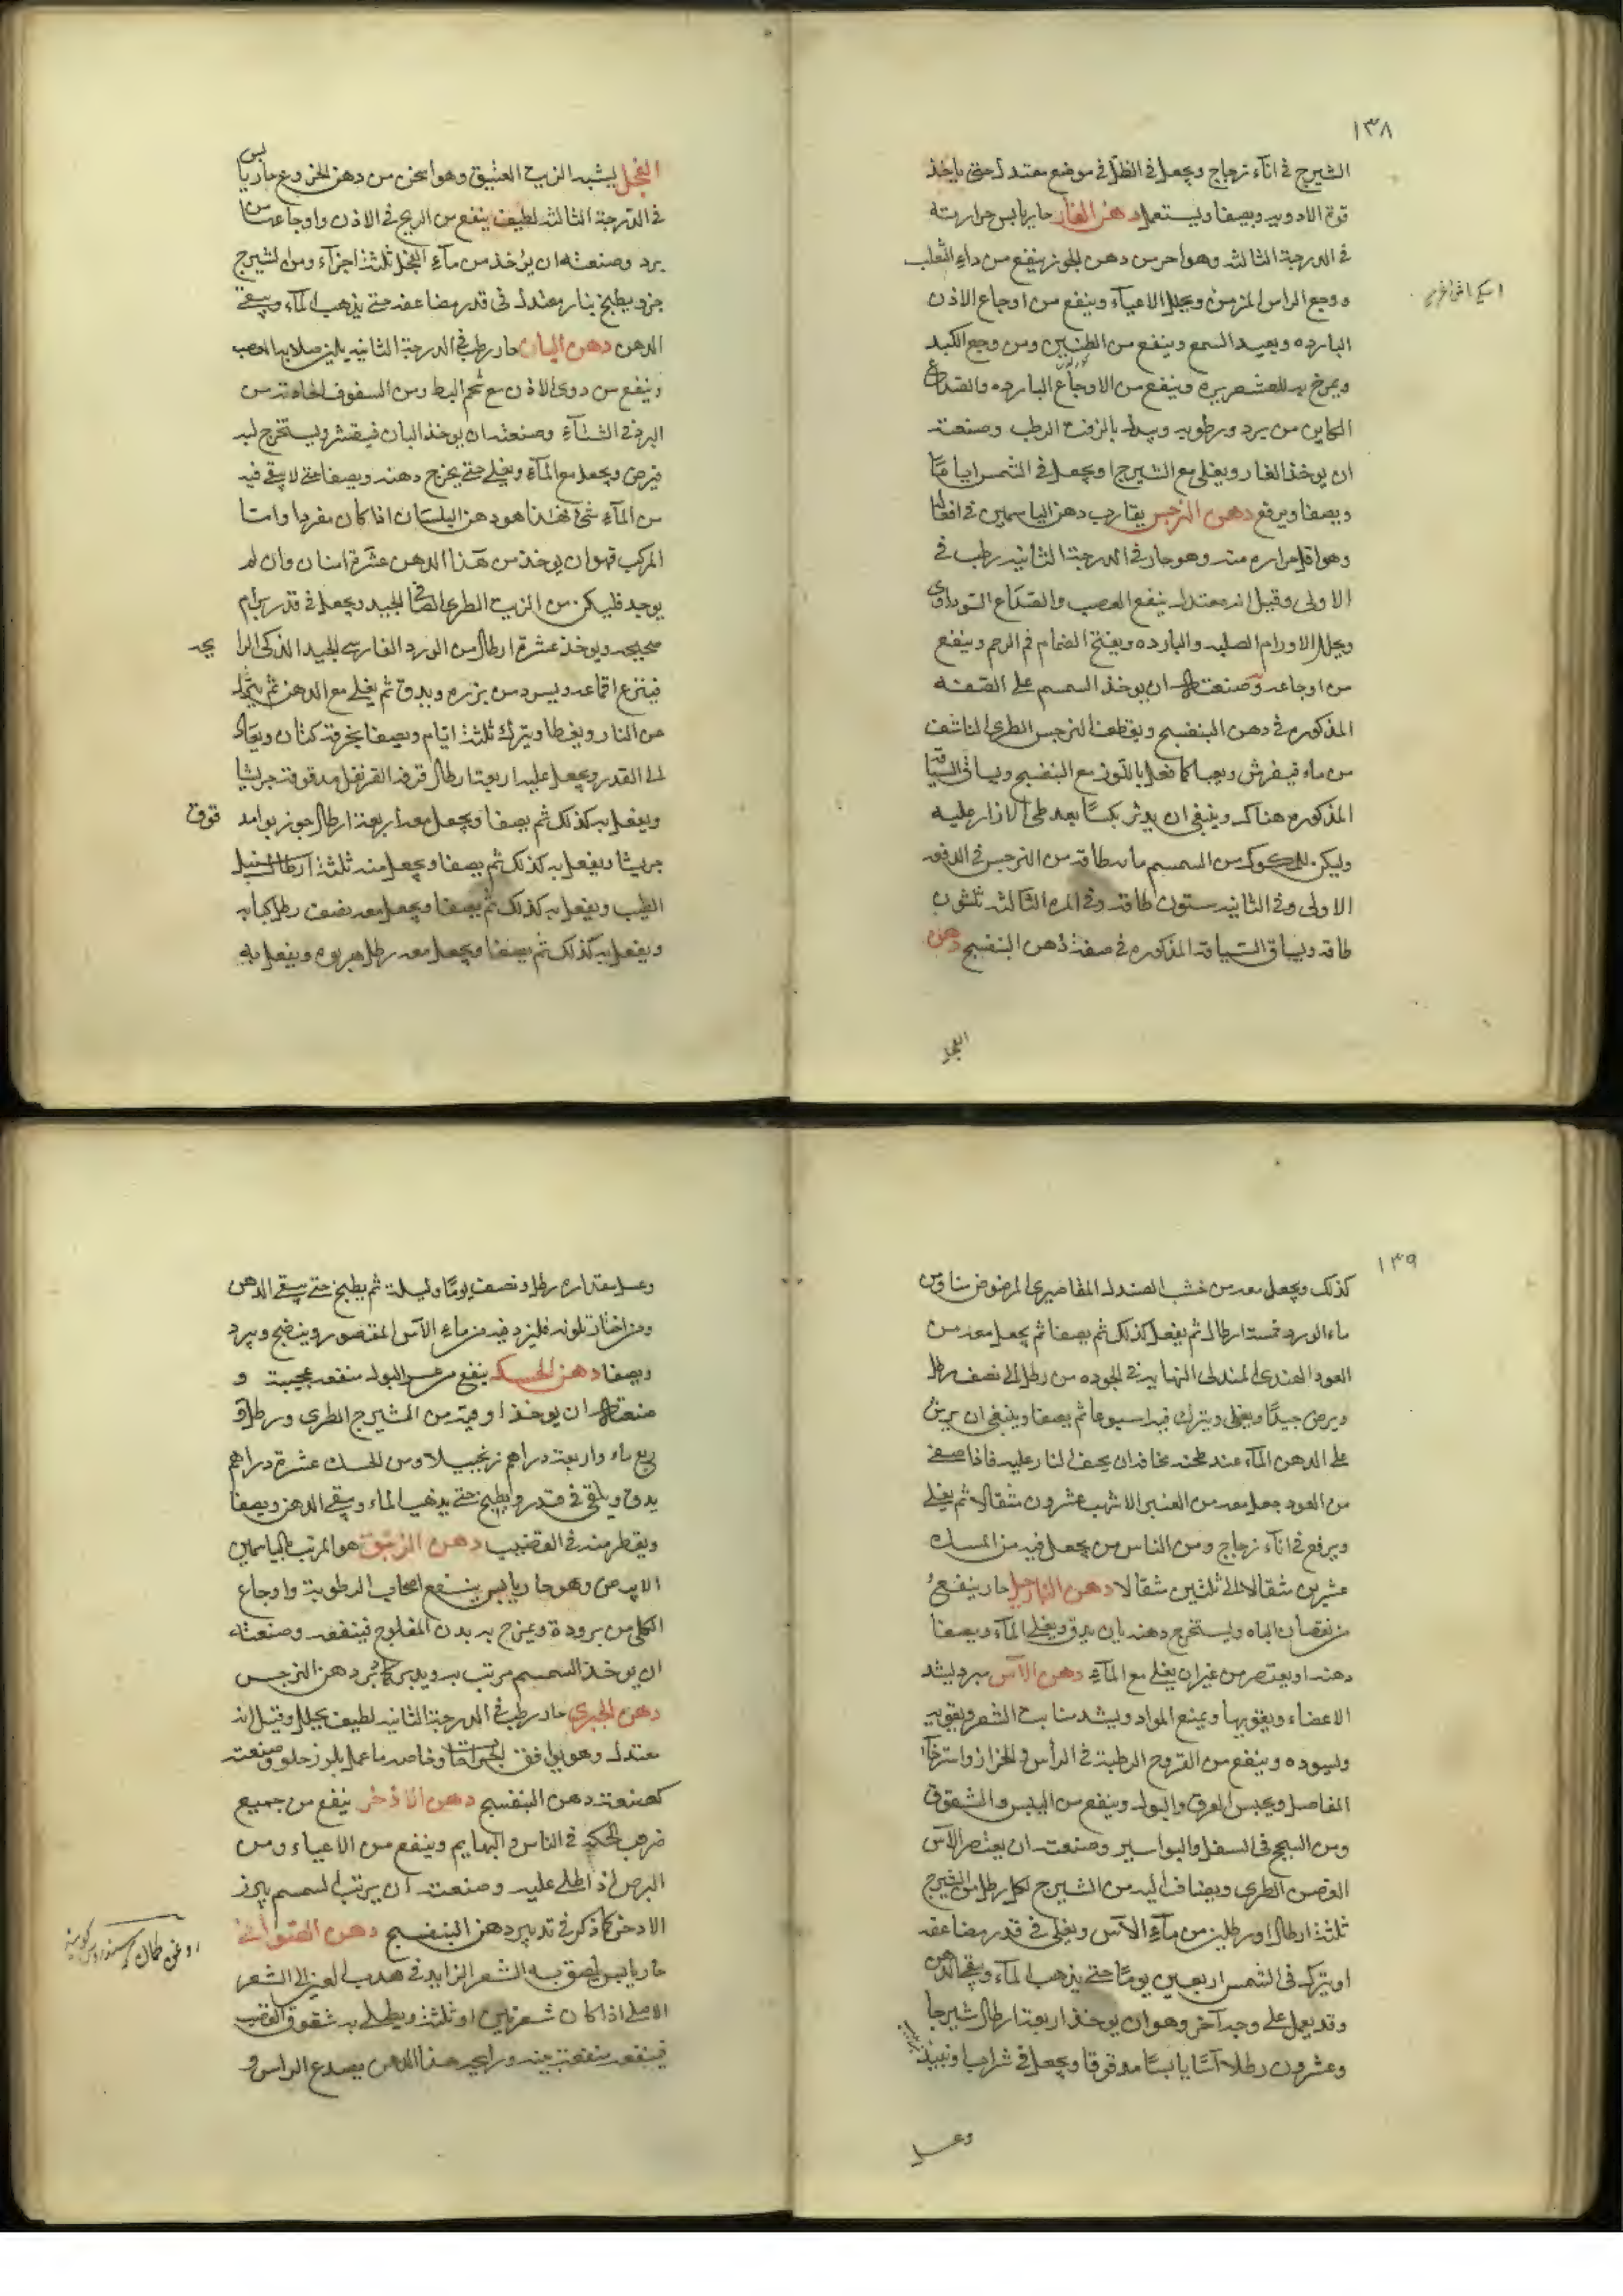 ١٣٨
الشيرج في انآء زجاج ويجعل في الظل في موضع معتدل حتى ياخذ
قوة الادويه ويصفا ويستعمل دهن الغار حار يابس حرارته
في الدرجة الثالثه وهو احر من دهن الجوز ينفع من داء الثعلب
ووجع الراس المزمن ويحلل الاعيآء وينفع من اوجاع الاذن
البارده ويعيد السمع وينفع من الطنين ومن وجع الكبد
ويمرخ به للقشعريره وينفع من الاوجاع البارده والصداع
الكاين من برد ورطوبه ويبدل بالزفت الرطب وصنعته
ان يوخذ الغار ويغلى مع الشيرج او يجعل في الشمس اياما
ويصفا ويرفع دهن النرجس يقارب دهن الياسمين في افعاله
وهو اقل حراره منه وهو حار في الدرجة الثانيه رطب في
الاولى وقيل انه معتدل ينفع العصب والصداع السوداوي
ويحلل الاورام الصلبه والبارده ويفتح انضمام فم الرحم وينفع
من اوجاعه وصنعته ان يوخذ السمسم على الصفه
المذكوره في دهن البنفسج ويقطف النرجس الطري الناشف
من ماء فيفرش ويعبا كما فعل باللوز مع البنفسج ويساق السياقه
المذكوره هناك وينبغي ان يدثر بكسآ بعد طي الازار عليه
وليكن للمكوك من السمسم مايه طاقه من النرجس في الدفعه
الاولى وفي الثانيه ستون طاقه وفي المره الثالثه ثلثون
طاقه ويساق السياقه المذكوره في صفة دهن البنفسج دهن
الفجل
الفجل يشبه الزيت العتيق وهو اسخن من دهن الخروع حار يابس
في الدرجة الثالثه لطيف ينفع من الريح في الاذن واوجاعها من
برد وصنعته ان يؤخذ من مآء الفجل ثلثة اجزآء ومن الشيرج
جزو يطبخ بنار معتدله في قدر مضاعفه حتى يذهب المآء ويبقى
الدهن دهن البان حار رطب في الدرجة الثانيه يلين صلابة العصب
وينفع من دوي الاذن مع شحم البط ومن الشقوق الحادثة من
البرد في الشتآء وصنعته ان يوخذ البان فيقشر ويستخرج لبه
فيرض ويجعل مع المآء ويغلى حتى يخرج دهنه ويصفا حتى لا يبقى فيه
من المآء شيء فهذا هو دهن البان اذا كان مفردا واما
المركب فهو ان يوخذ من هذا الدهن عشرة امنان وان لم
يوجد فليكن من الزيت الطري الصافي الجيد ويجعل في قدر برام
صحيحه ويوخذ عشرة ارطال من الورد الفارسي الجيد الذكي الرايحه
فينزع اقماعه وبيوسه من بزره ويدق ثم يغلى مع الدهن ثم ينزل
من النار ويغطا ويترك ثلثة ايام ويصفا بخرقة كتان ويعاد
الى القدر ويجعل عليه اربعة ارطال قرفة القرنفل مدقوقة جريشا
ويفعل به كذلك ثم يصفا ويجعل معه اربعة ارطال جوز بوا مدقوق
جريشا ويفعل به كذلك ثم يصفا ويجعل منه ثلثة ارطال سنبل
الطيب ويفعل به كذلك ثم يصفا ويجعل معه نصف رطل كبابه
ويفعل به كذلك ثم يصفا ويجعل معه رطل هربوه ويفعل به
١٣٩
كذلك ويجعل معه من خشب الصندل المقاصيري المرضوض منا ومن
ماء الورد خمسة ارطال ثم يفعل كذلك ثم يصفا ثم يجعل معه من
العود الهندي المندلي النهايه في الجوده من رطل الى نصف رطل
ويرض جيدا ويغلى ويترك فيه اسبوعا ثم يصفا وينبغي ان يرش
على الدهن المآء عند طبخه مخافة ان يجف النار عليه فاذا صفي
من العود جعل معه من العنبر الاشهب عشرون مثقالا ثم يغلى
ويرفع في انآء زجاج ومن الناس من يجعل فيه من المسك
عشرين مثقالا الى ثلثين مثقالا دهن النارجيل حار ينفع
من نقصان الباه ويستخرج دهنه بان يدق ويغلى المآء ويصفا
دهنه او يعتصر من غير ان يغلى مع المآء دهن الآس مبرد يشد
الاعضاء ويقويها ويمنع المواد ويشد منابت الشعر ويقويه
ويسوده وينفع من القروح الرطبة في الرأس والحزاز واسترخآ
المفاصل ويحبس العرق والبول وينفع من اليبس والشقوق
ومن السحج في السفل والبواسير وصنعته ان يعتصر الآس
الغض الطري ويضاف اليه من الشيرج لكل رطل من الشيرج
ثلثة ارطال او رطلين من مآء الآس ويغلى في قدر مضاعفه
او يترك في الشمس اربعين يوما حتى يذهب المآء ويبقى الدهن
وقد يعمل على وجه آخر وهو ان يوخذ اربعة ارطال شيرجا
وعشرون رطلا آسا يابسا مدقوقا ويجعل في شراب او نبيذ
وعسل
وعسل مقداره رطل ونصف يوما وليلة ثم يطبخ حتى يبقى الدهن
ومن اختار تلونه فليزد فيه من ماء الآس المعتصور وينضج ويبرد
ويصفا دهن الحسك ينفع من عسر البول منفعه عجيبة و
صنعته ان يوخذ اوقية من الشيرج الطري ورطل و
ربع ماء واربعة دراهم زنجبيلا ومن الحسك عشرة دراهم
يدق ويلقى في قدر ويطبخ حتى يذهب الماء ويبقى الدهن ويصفا
ويقطر منه في القضيب دهن الزنبق هو المرتب بالياسمين
الابيض وهو حار يابس ينفع اصحاب الرطوبة واوجاع
الكلى من برودة ويمزج به بدن المفلوج فينفعه وصنعته
ان يوخذ السمسم مرتب به ويدبر كما دبر دهن النرجس
دهن الخيري حار رطب في الدرجة الثانيه لطيف يحلل وقيل انه
معتدل وهو يوافق الجراحات وخاصه ما عمل بلوز حلو وصنعته
كصنعة دهن البنفسج دهن الاذخر ينفع من جميع
ضروب الحكه في الناس والبهايم وينفع من الاعياء ومن
البرص اذا طلي عليه وصنعته ان يرتب السمسم بزر
الاذخر كما ذكر في تدبير دهن البنفسج دهن
حار يابس يلصق به الشعر الزايد في هدب العين الى الشعر
الاصلي اذا كان شعرتين او ثلثة ويطلى به شقوق العصب
فينفعه منفعة بينه ورايحة هذا الدهن يصدع الراس و